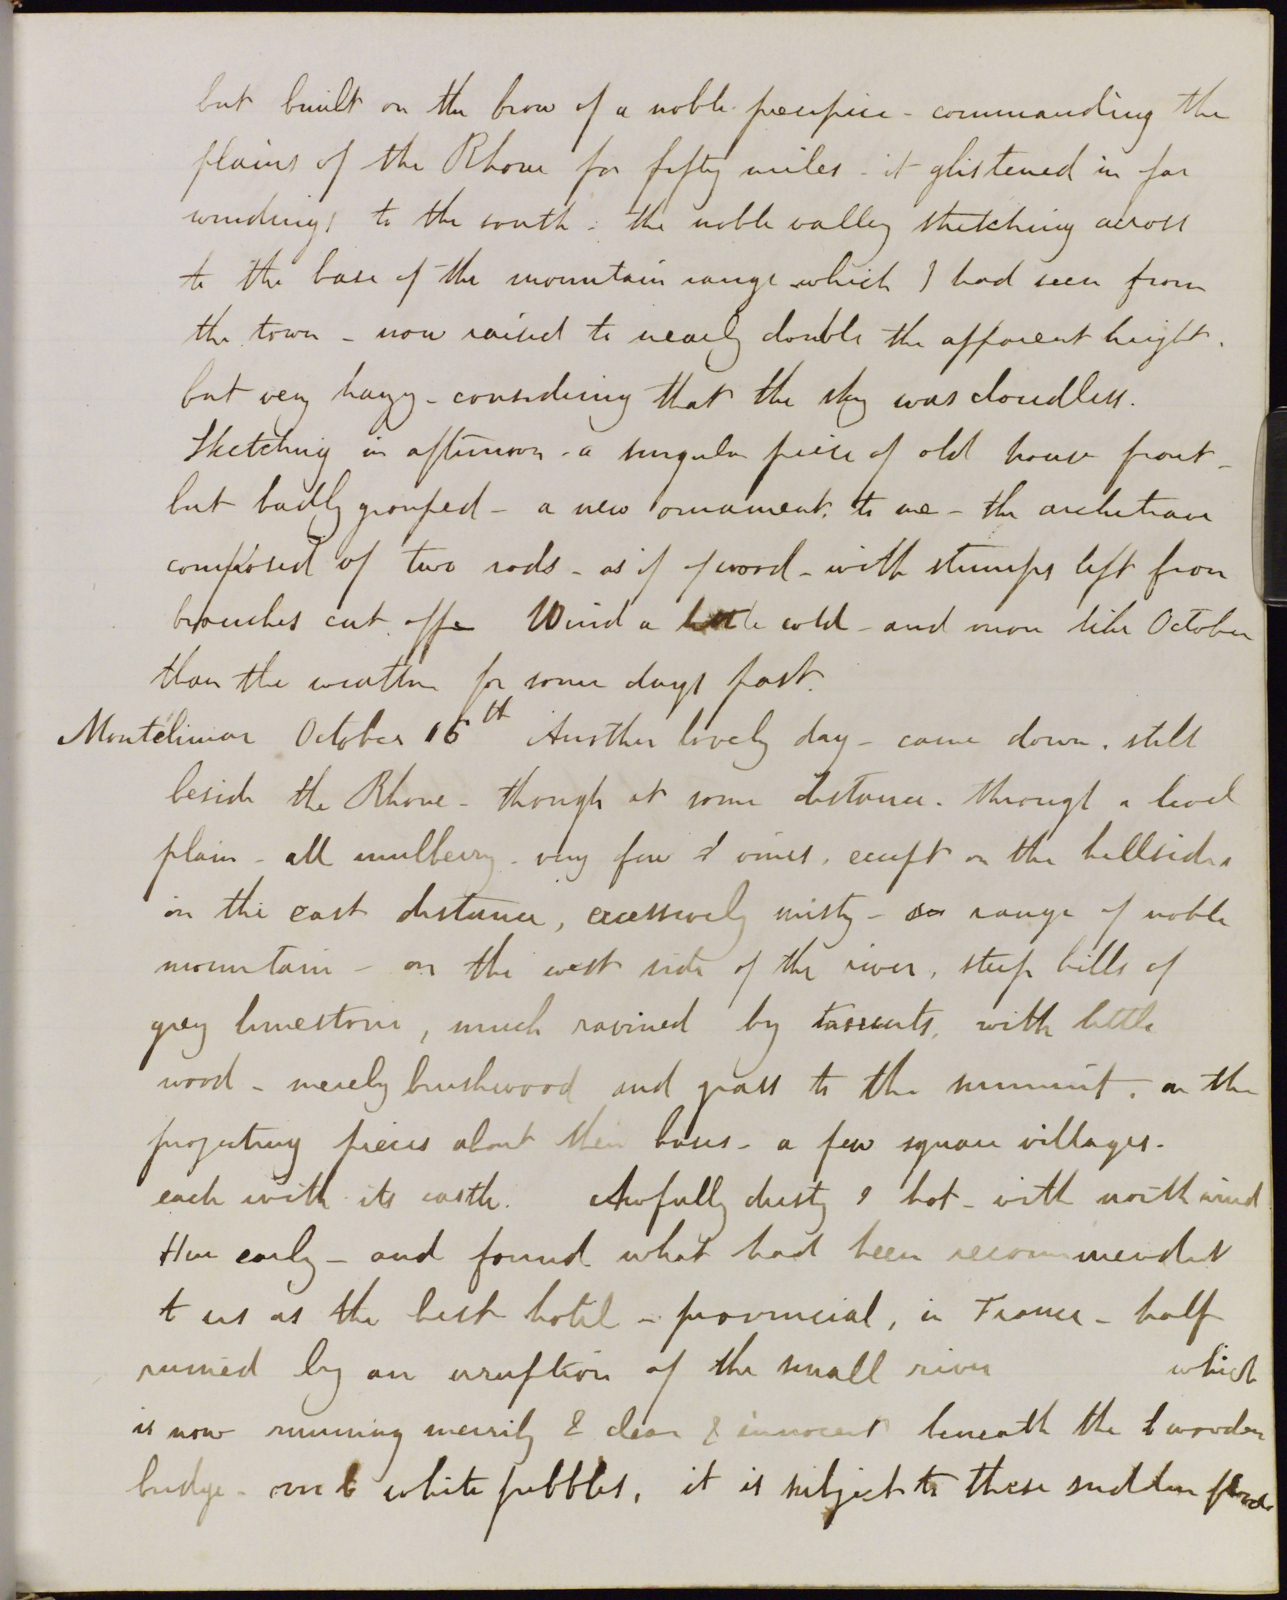 but built on the brow of a noble precipice - commanding the
plains of the Rhone for fifty miles - it glistened in far
windings to the south : the noble valley stretching across
to the base of the mountain range which I had seen from
the town - now raised to nearly double the apparent height.
but very hazy - considering that the sky was cloudless.
Sketching in afternoon - a singular piece of old house front -
but badly grouped - a new ornament, to me - the architrave
composed of two rods - as if of wood - with stumps left from
branches cut off - Wind a little cold - and more like October
than the weather for some days past.
Montélimar October 16th Another lovely day - came down, still
beside the Rhone - though at some distance. through a level
plain - all mulberry - very few vines, except on the hillsides
in the east distance, excessively misty - range of noble
mountain - on the west side of the river, steep hills of
grey limestone, much ravined by torrents, with little
wood - merely brushwood and grass to the summit. on the
projecting pieces about their bases - a few square villages.
each with its castle. Awfully dusty & hot - with north wind
Here early - and found what had been recommended
t us as the best hotel - provincial, in France - half
ruined by an irruption of the small river which
is now running merrily & clear & innocent beneath the wooden
bridge - over white pebbles, it is subject to these sudden floods